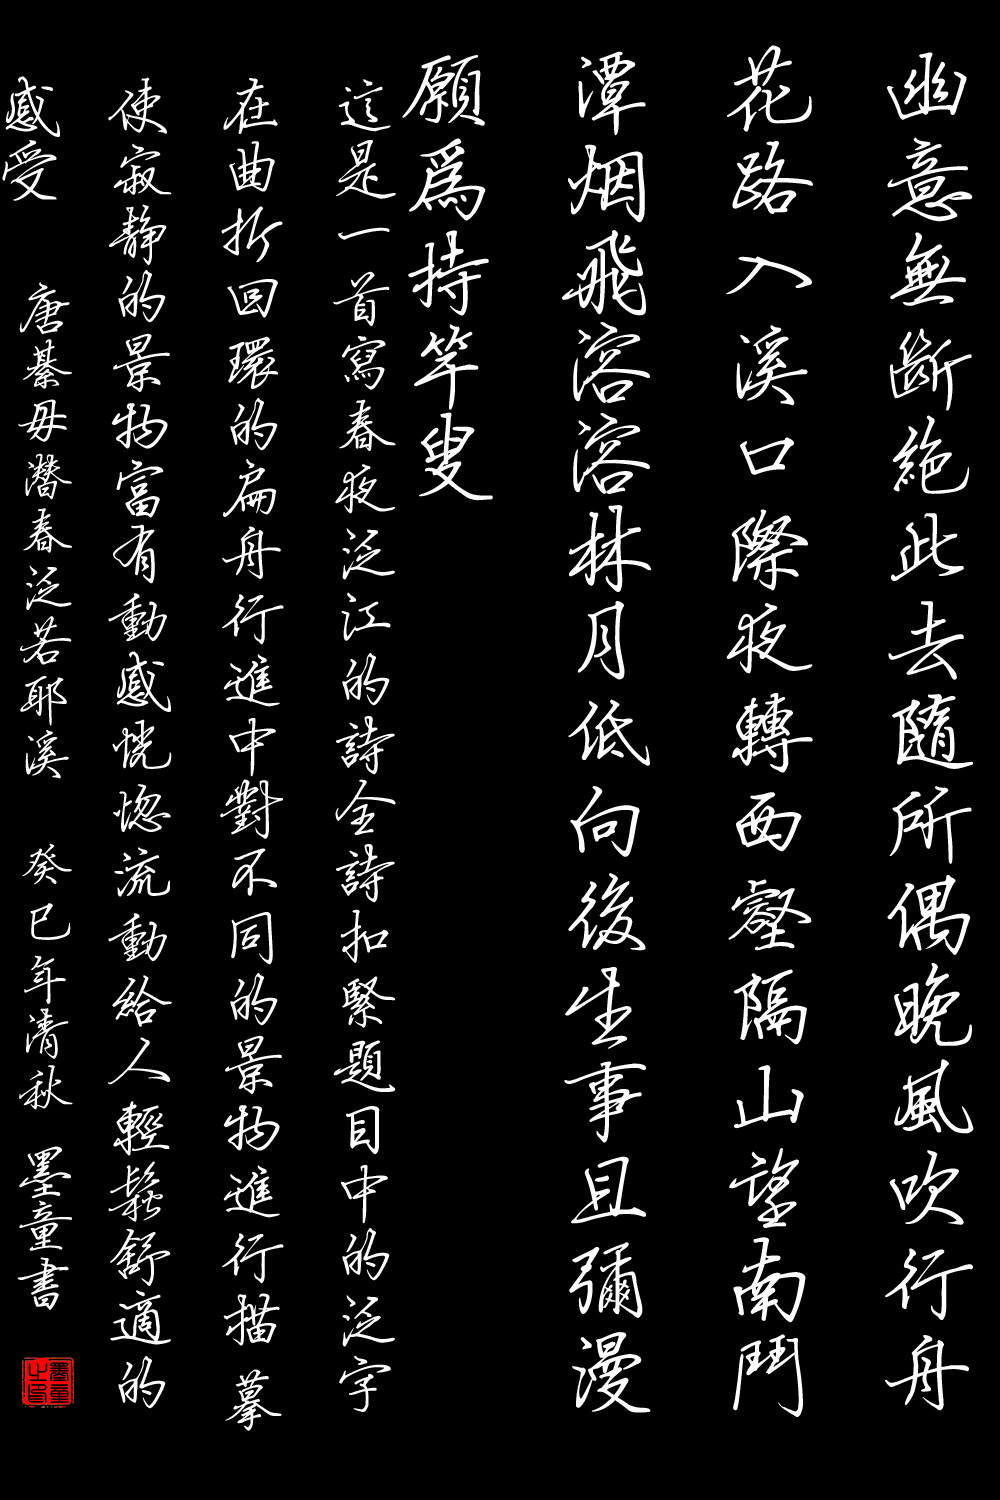 幽意無斷絕此去隨所偶晚風吹行舟
花路入溪口際夜轉西壑隔山望南鬥
潭烟飛溶溶林月低向後生事且彌漫
願為持竿叟
這是一首寫春夜泛江的詩全詩扣緊題目中的泛字
在曲折回環的扁舟行進中對不同的景物進行描摹
使寂静的景物富有動感恍惚流動給人輕鬆舒適的
感受
唐綦毋潛春泛若耶溪 癸巳年清秋 墨童書
墨童之印